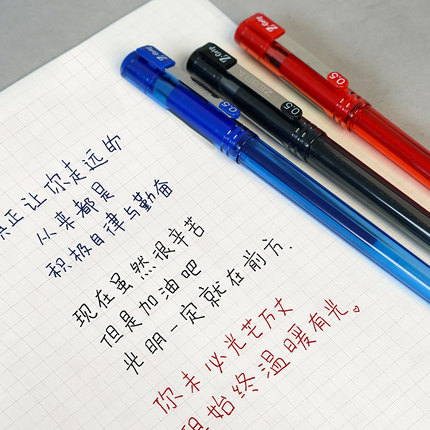 Z-Grip
0.5
Z-Grip
ZEBRA
0.5
Z-Grip
0.5
正让你走远的
从来都是
积极自律与勤奋
现在虽然很辛苦
但是加油吧
光明一定就在前方.
你未必光芒万丈
但始终温暖有光。